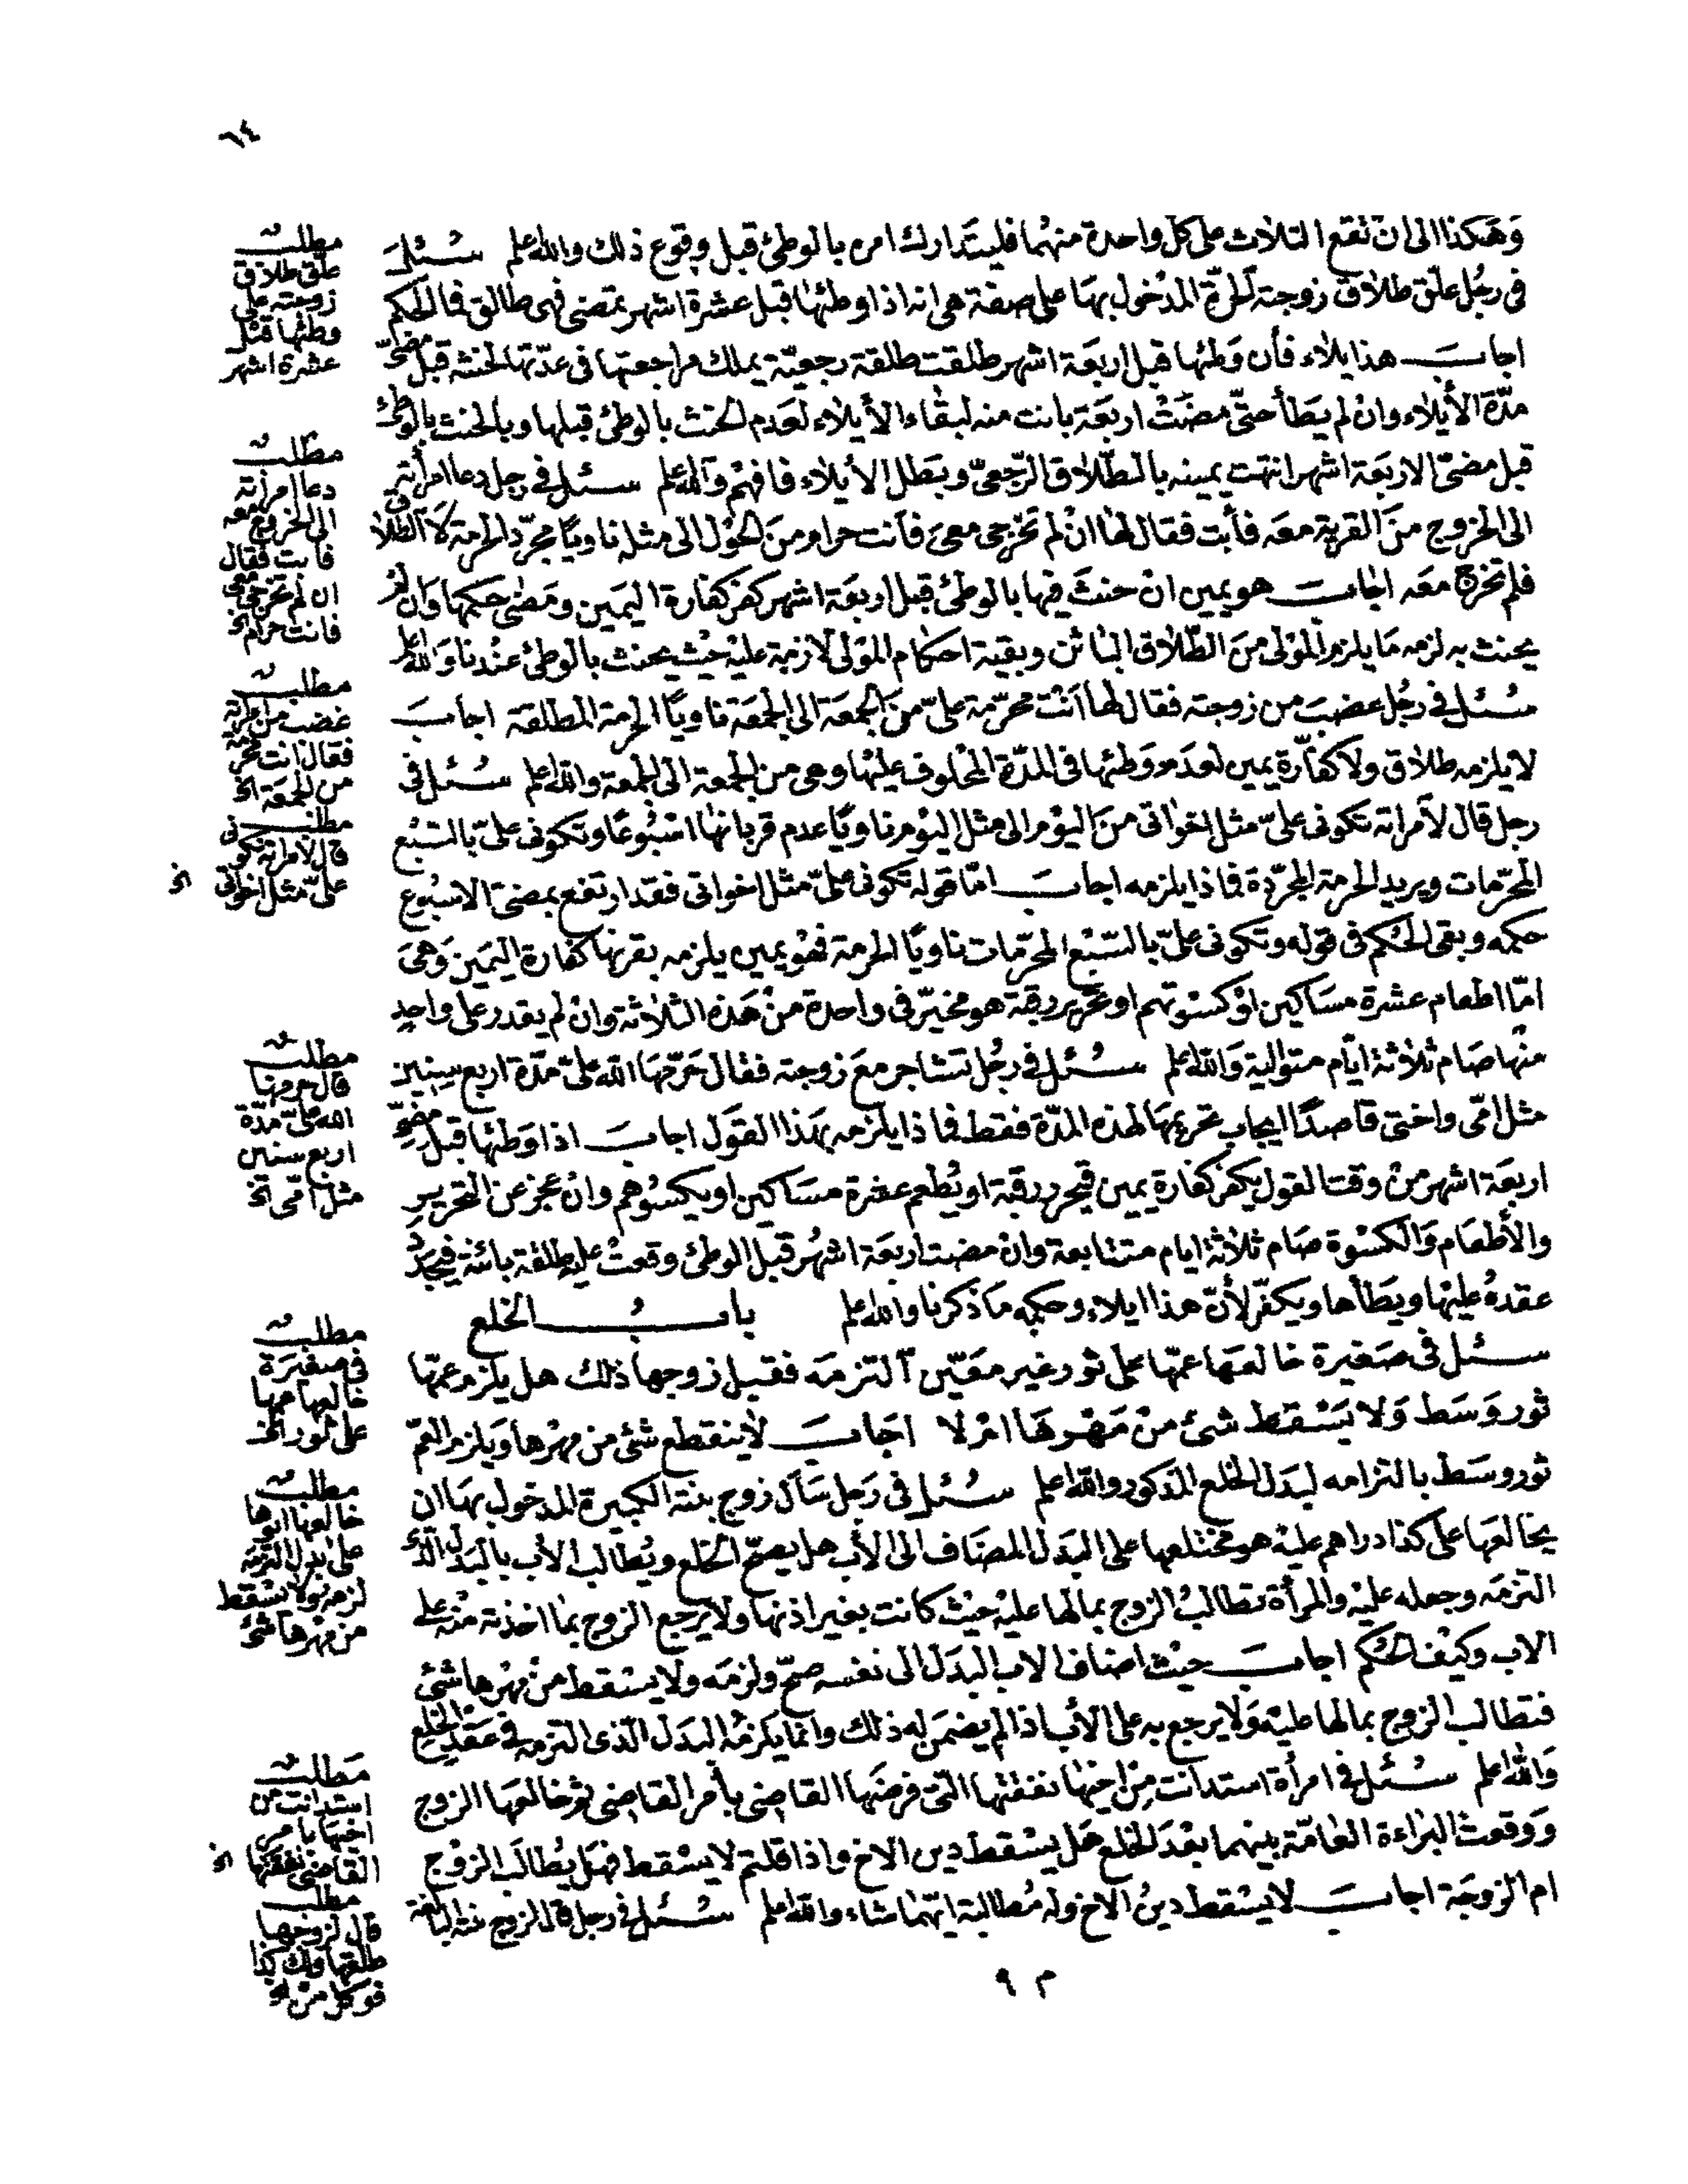 ٦٤
وهكذا الى ان تقع الثلاث على كل واحدة منهما فليتدارك امره بالوطئ قبل وقوع ذلك والله اعلم سئل
في رجل علق طلاق زوجته الحرة المدخول بها على صفة هي انه اذا وطئها قبل عشرة اشهر تمضى فهى طالق فما الحكم
اجاب هذا ايلاء فأن وطئها قبل اربعة اشهر طلقت طلقة رجعية يملك مراجعتها فى عدتها لحنثه قبل مضىّ
مدة الأيلاء وان لم يطأ حتى مضت اربعة بانت منه لبقاء الأيلاء لعدم الحنث بالوطئ قبلها وبالحنث بالوطئ
قبل مضىّ الاربعة اشهر انتهت يمينه بالطلاق الرجعىّ وبطل الأيلاء فافهم والله اعلم سئل في رجل دعا امرأته
الى الخروج من القرية معه فأبت فقال لها ان لم تخرجى معى فأنت حرام من الحول الى مثله ناويا مجرد الحرمة لا الطلاق
فلم تخرج معه اجاب هو يمين ان حنث فيها بالوطئ قبل اربعة اشهر كفر كفارة اليمين ومضى حكمها وان لم
يحنث به لزمه ما يلزم المولى من الطلاق البائن وبقية احكام المولى لازمة عليه حيث يحنث بالوطئ عندنا والله اعلم
سئل في رجل غضب من زوجته فقال لها انت محرمة علىّ من الجمعة الى الجمعة ناويا الحرمة المطلقة اجاب
لا يلزمه طلاق ولا كفارة يمين لعدم وطئها فى المدة المحلوف عليها وهى من الجمعة الى الجمعة والله اعلم سئل فى
رجل قال لأمراته تكونى علىّ مثل اخواتى من اليوم الى مثل اليوم ناويا عدم قربانها اسبوعا وتكونى علىّ بالسبع
المحرمات ويريد الحرمة المجردة فماذا يلزمه اجاب امّا قوله تكونى علىّ مثل اخواتى فقد ارتفع بمضىّ الاسبوع
حكمه وبقى الحكم فى قوله وتكونى علىّ بالسبع المحرمات ناويا الحرمة فهو يمين يلزمه بقربها كفارة اليمين وهى
امّا اطعام عشرة مساكين او كسوتهم او تحرير رقبة هو مخير فى واحدة من هذه الثلاثة وان لم يقدر على واحد
منها صام ثلاثة ايام متوالية والله اعلم سئل في رجل تشاجر مع زوجته فقال حرمها الله علىّ مدة اربع سنين
مثل امّى واختى قاصدا ايجاب تحريمها لهذه المدة فقط فماذا يلزمه بهذا القول اجاب اذا وطئها قبل مضىّ
اربعة اشهر من وقت القول يكفر كفارة يمين فيحرر رقبة او يطعم عشرة مساكين او يكسوهم وان عجز عن التحرير
والأطعام والكسوة صام ثلاثة ايام متتابعة وان مضت اربعة اشهر قبل الوطئ وقعت عليه طلقة بائنة فيجدد
عقده عليها ويطأها ويكفر لأن هذا ايلاء وحكمه ما ذكرنا والله اعلم باب الخلع
سئل فى صغيرة خالعها عمها على ثور غير معين التزمه فقبل زوجها ذلك هل يلزم عمها
ثور وسط ولا يسقط شئ من مهرها ام لا اجاب لا ينقطع شئ من مهرها ويلزم العم
ثور وسط بالتزامه لبدل الخلع المذكور والله اعلم سئل فى رجل سأل زوج بنته الكبيرة المدخول بها ان
يخالعها على كذا دراهم عليه هو مختلعها على البدل المضاف الى الأب هل يصح الخلع ويطالب الأب بالبدل الذى
التزمه وجعله عليه والمرأة تطالب الزوج بمالها عليه حيث كانت بغير اذنها ولا يرجع الزوج بما اخذته منه على
الاب وكيف الحكم اجاب حيث اضاف الاب البدل الى نفسه صح ولزمه ولا يسقط من مهرها شئ
فتطالب الزوج بمالها عليه ولا يرجع به على الأب اذا لم يضمن له ذلك وانما يلزمه البدل الذى التزمه فى عقد الخلع
والله اعلم سئل في امرأة استدانت من اخيها نفقتها التى فرضها القاضى بأمر القاضى ثم خالعها الزوج
ووقعت البراءة العامة بينهما بعد الخلع هل يسقط دين الاخ واذا قلتم لا يسقط فهل يطالب الزوج
ام الزوجة اجاب لا يسقط دين الاخ وله مطالبة ايهما شاء والله اعلم سئل في رجل قال لزوج بنته البالغة
م ٩
مطلب
علق طلاق
زوجته على
وطئها قبل
عشرة اشهر
مطلب
دعا امرأته
الى الخروج معه
فأبت فقال
ان لم تخرجى معى
فانت حرام الخ
مطلب
غضب من امرأته
فقال انت محرمة
من الجمعة الخ
مطلب
قال لأمراته تكونى
علىّ مثل اخواتى الخ
مطلب
قال حرمها
الله علىّ مدة
اربع سنين
مثل امّى الخ
مطلب
فى صغيرة
خالعها عمها
على ثور الخ
مطلب
خالعها ابوها
على بدل التزمه
لزمه ولا يسقط
من مهرها شئ
مطلب
استدانت من
اخيها بامر
القاضى نفقتها الخ
مطلب
قال لزوجها
طلقها ولك كذا
فوكل من الخ